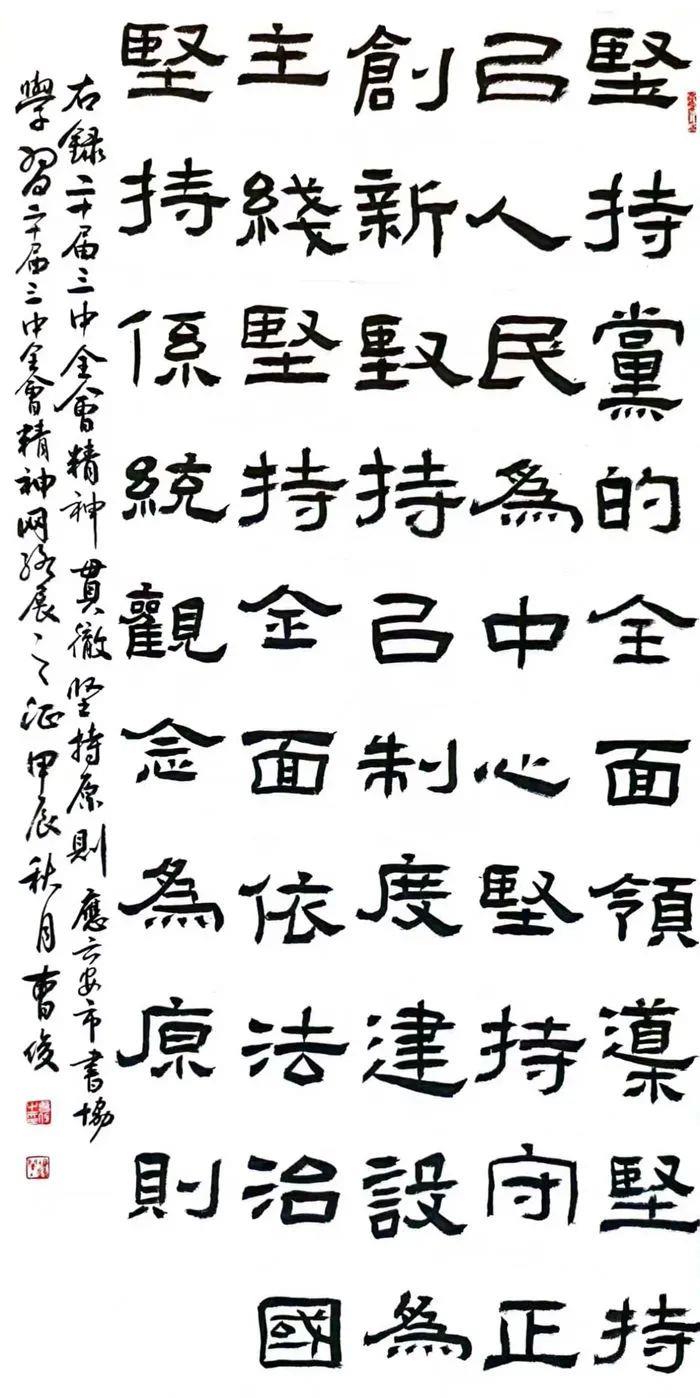 堅持黨的全面領導堅持
㠯人民為中心堅持守正
創新堅持㠯制度建設為
主綫堅持全面依法治國
堅持係統觀念為原則
右錄二十届三中全會精神貫徹坚持原則應六安市書協
學習二十届三中全會精神网络展之征甲辰秋月曹俊